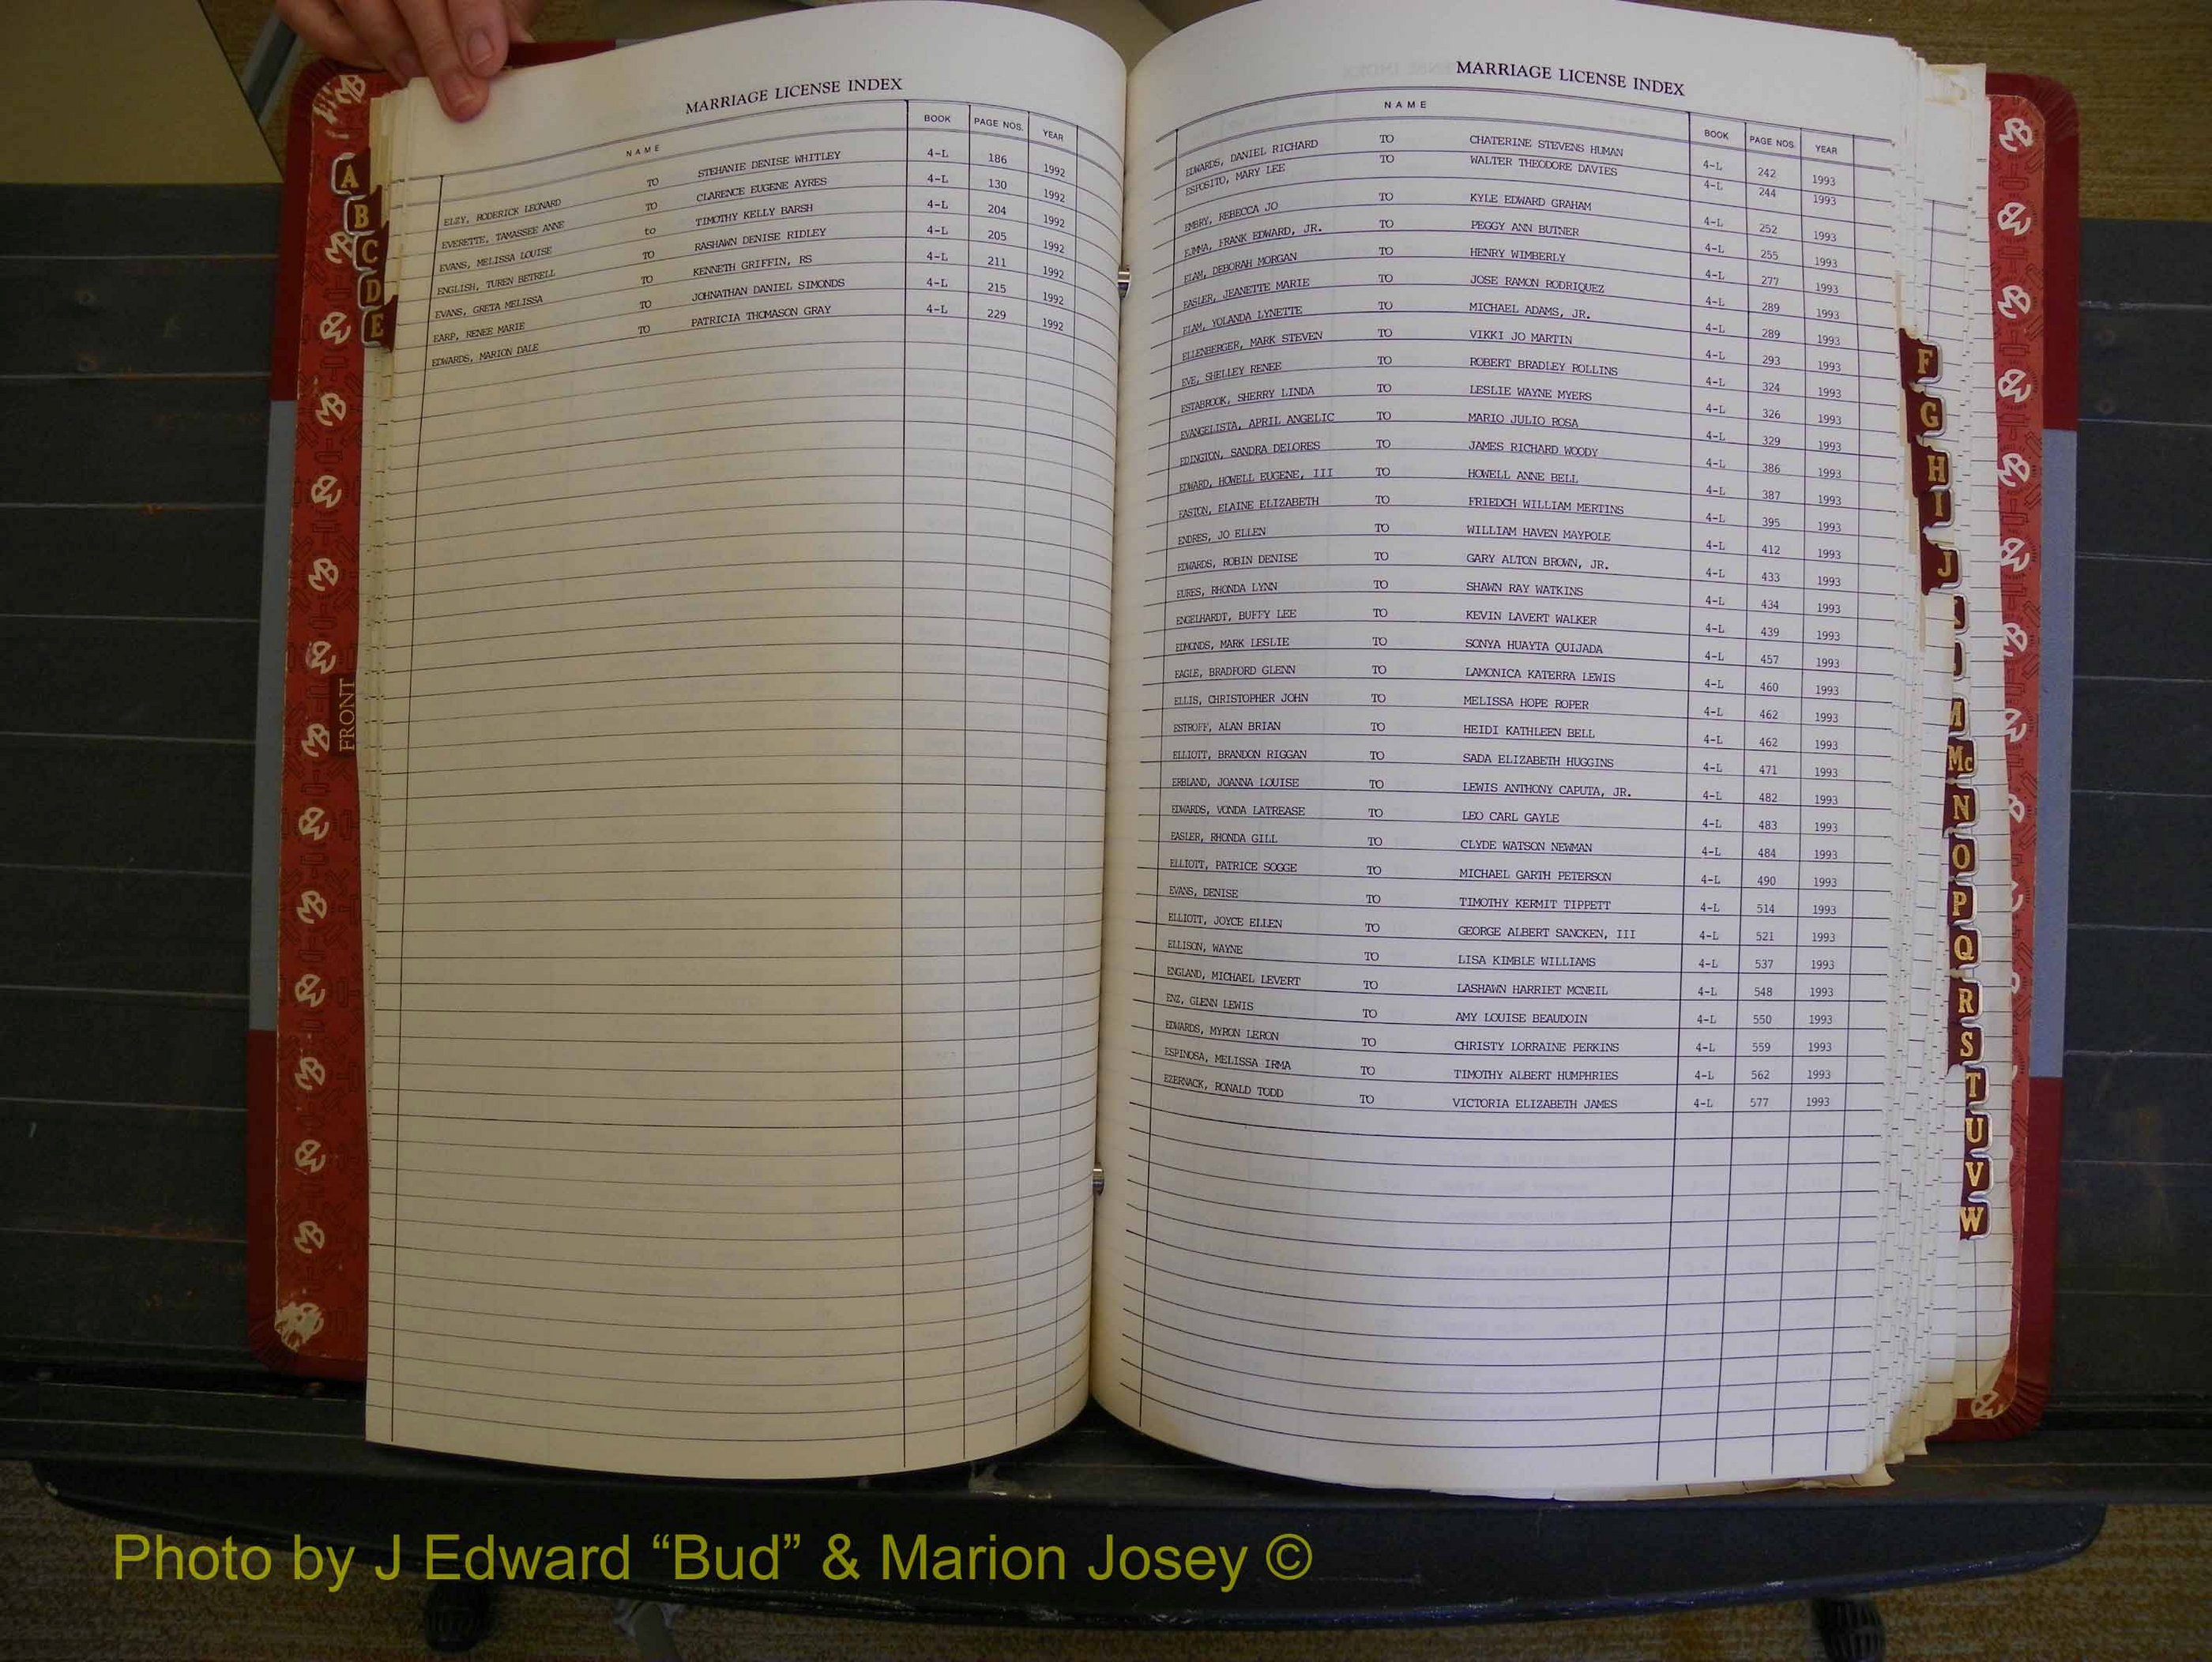 MARRIAGE LICENSE INDEX
NAME BOOK PAGE NOS. YEAR
ELZY, RODERICK LEONARD TO STEHANIE DENISE WHITLEY 4-L 186 1992
EVERETTE, TAMASSEE ANNE TO CLARENCE EUGENE AYRES 4-L 130 1992
EVANS, MELISSA LOUISE to TIMOTHY KELLY BARSH 4-L 204 1992
ENGLISH, TUREN BETRELL TO RASHAWN DENISE RIDLEY 4-L 205 1992
EVANS, GRETA MELISSA TO KENNETH GRIFFIN, RS 4-L 211 1992
EARP, RENEE MARIE TO JOHNATHAN DANIEL SIMONDS 4-L 215 1992
EDWARDS, MARION DALE TO PATRICIA THOMASON GRAY 4-L 229 1992
MARRIAGE LICENSE INDEX
NAME BOOK PAGE NOS. YEAR
EDWARDS, DANIEL RICHARD TO CHATERINE STEVENS HUMAN 4-L 242 1993
ESPOSITO, MARY LEE TO WALTER THEODORE DAVIES 4-L 244 1993
EMBRY, REBECCA JO TO KYLE EDWARD GRAHAM 4-L 252 1993
FRANK EDWARD, JR. TO PEGGY ANN BUTNER 4-L 255 1993
ELAM, DEBORAH MORGAN TO HENRY WIMBERLY 4-L 277 1993
EASLER, JEANETTE MARIE TO JOSE RAMON RODRIQUEZ 4-L 289 1993
ELAM, YOLANDA LYNETTE TO MICHAEL ADAMS, JR. 4-L 289 1993
ELLENBERGER, MARK STEVEN TO VIKKI JO MARTIN 4-L 293 1993
EVE, SHELLEY RENEE TO ROBERT BRADLEY ROLLINS 4-L 324 1993
ESTABROOK, SHERRY LINDA TO LESLIE WAYNE MYERS 4-L 326 1993
EVANGELISTA, APRIL ANGELIC TO MARIO JULIO ROSA 4-L 329 1993
EDINGTON, SANDRA DELORES TO JAMES RICHARD WOODY 4-L 386 1993
EDWARD, HOWELL EUGENE, III TO HOWELL ANNE BELL 4-L 387 1993
EASTON, ELAINE ELIZABETH TO FRIEDCH WILLIAM MERTINS 4-L 395 1993
ENDRES, JO ELLEN TO WILLIAM HAVEN MAYPOLE 4-L 412 1993
EDWARDS, ROBIN DENISE TO GARY ALTON BROWN, JR. 4-L 433 1993
EURES, RHONDA LYNN TO SHAWN RAY WATKINS 4-L 434 1993
ENGELHARDT, BUFFY LEE TO KEVIN LAVERT WALKER 4-L 439 1993
EDMONDS, MARK LESLIE TO SONYA HUAYTA QUIJADA 4-L 457 1993
EAGLE, BRADFORD GLENN TO LAMONICA KATERRA LEWIS 4-L 460 1993
ELLIS, CHRISTOPHER JOHN TO MELISSA HOPE ROPER 4-L 462 1993
ESTROFF, ALAN BRIAN TO HEIDI KATHLEEN BELL 4-L 462 1993
ELLIOTT, BRANDON RIGGAN TO SADA ELIZABETH HUGGINS 4-L 471 1993
ERBLAND, JOANNA LOUISE TO LEWIS ANTHONY CAPUTA, JR. 4-L 482 1993
EDWARDS, VONDA LATREASE TO LEO CARL GAYLE 4-L 483 1993
EASLER, RHONDA GILL TO CLYDE WATSON NEWMAN 4-L 484 1993
ELLIOTT, PATRICE SOGGE TO MICHAEL GARTH PETERSON 4-L 490 1993
EVANS, DENISE TO TIMOTHY KERMIT TIPPETT 4-L 514 1993
ELLIOTT, JOYCE ELLEN TO GEORGE ALBERT SANCKEN, III 4-L 521 1993
ELLISON, WAYNE TO LISA KIMBLE WILLIAMS 4-L 537 1993
ENGLAND, MICHAEL LEVERT TO LASHAWN HARRIET MCNEIL 4-L 548 1993
ENZ, GLENN LEWIS TO AMY LOUISE BEAUDOIN 4-L 550 1993
EDWARDS, MYRON LERON TO CHRISTY LORRAINE PERKINS 4-L 559 1993
ESPINOSA, MELISSA IRMA TO TIMOTHY ALBERT HUMPHRIES 4-L 562 1993
EZERNACK, RONALD TODD TO VICTORIA ELIZABETH JAMES 4-L 577 1993
A
B
C
D
E
FRONT
F
G
H
I
J
Mc
N
O
P
Q
R
S
T
U
V
W
Photo by J Edward “Bud” & Marion Josey ©